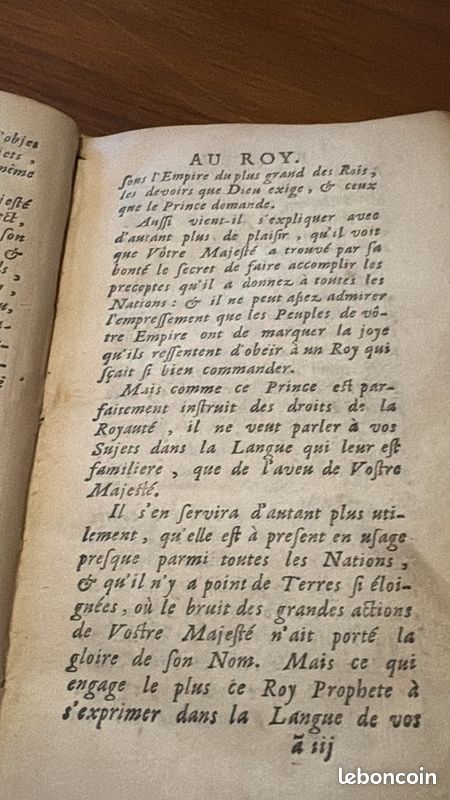 'objet
jets,
même
jesté
ct,
son
&
AU ROY.
ſous l'Empire du plus grand des Rois,
les devoirs que Dieu exige, & ceux
que le Prince demande.
Auſſi vient-il s'expliquer avec
d'autant plus de plaiſir, qu'il voit
que Vôtre Majeſté a trouvé par ſa
bonté le ſecret de faire accomplir les
preceptes qu'il a donnez à toutes les
Nations: & il ne peut aſſez admirer
l'empreſſement que les Peuples de vô-
tre Empire ont de marquer la joye
qu'ils reſſentent d'obeïr à un Roy qui
ſçait ſi bien commander.
Mais comme ce Prince eſt par-
faitement inſtruit des droits de la
Royauté, il ne veut parler à vos
Sujets dans la Langue qui leur eſt
familiere, que de l'aveu de Voſtre
Majeſté.
Il s'en ſervira d'autant plus uti-
lement, qu'elle eſt à preſent en uſage
preſque parmi toutes les Nations,
& qu'il n'y a point de Terres ſi éloi-
gnées, où le bruit des grandes actions
de Voſtre Majeſté n'ait porté la
gloire de ſon Nom. Mais ce qui
engage le plus ce Roy Prophete à
s'exprimer dans la Langue de vos
ã iij
leboncoin